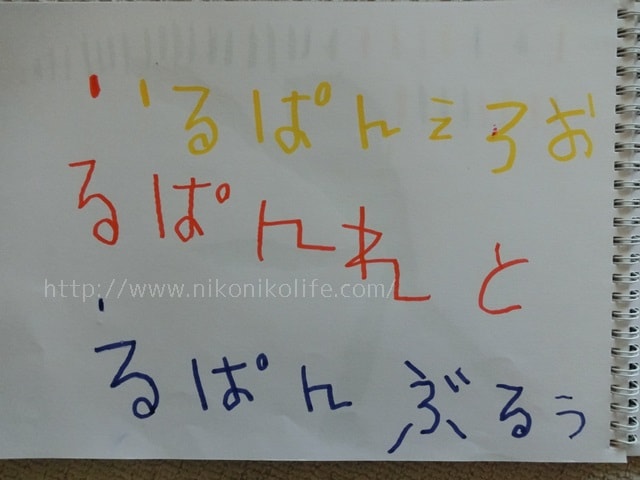 るぱんえろお
るぱんれっと
http://www.nikonikolife.com/
るぱんぶるぅ